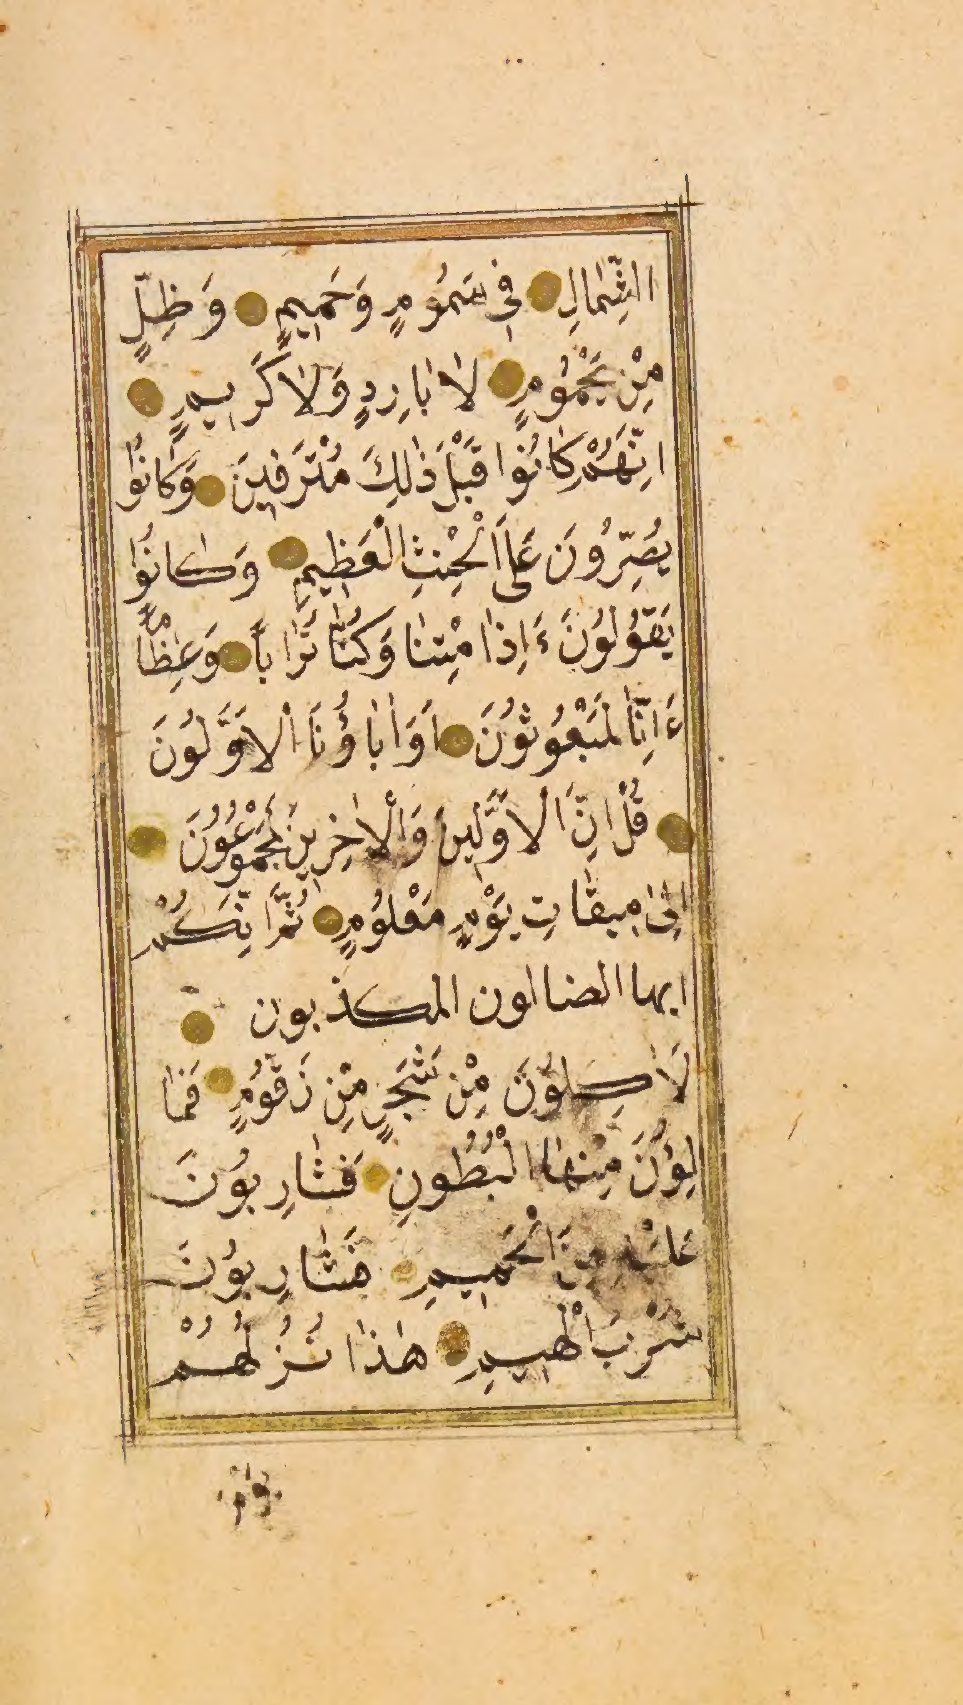 الشِّمَالِ فِى سَمُومٍ وَحَمِيمٍ وَظِلٍّ
مِنْ يَحْمُومٍ لَا بَارِدٍ وَلَا كَرِيمٍ
اِنَّهُمْ كَانُوا قَبْلَ ذٰلِكَ مُتْرَفِينَ وَكَانُوا
يُصِرُّونَ عَلَى الْحِنْثِ الْعَظِيمِ وَكَانُوا
يَقُولُونَ ءَاِذَا مِتْنَا وَكُنَّا تُرَابًا وَعِظَامًا
ءَاِنَّا لَمَبْعُوثُونَ اَوَاٰبَاؤُنَا الْاَوَّلُونَ
قُلْ اِنَّ الْاَوَّلِينَ وَالْاٰخِرِينَ لَمَجْمُوعُونَ
اِلٰى مِيقَاتِ يَوْمٍ مَعْلُومٍ ثُمَّ اِنَّكُمْ
ايها الضالون المكذبون
لَاٰكِلُونَ مِنْ شَجَرٍ مِنْ زَقُّومٍ فَمَا
لِؤُنَ مِنْهَا الْبُطُونِ فَشَارِبُونَ
عَلَيْهِ مِنَ الْحَمِيمِ فَشَارِبُونَ
شُرْبَ الْهِيمِ هٰذَا نُزُلُهُمْ
يوم